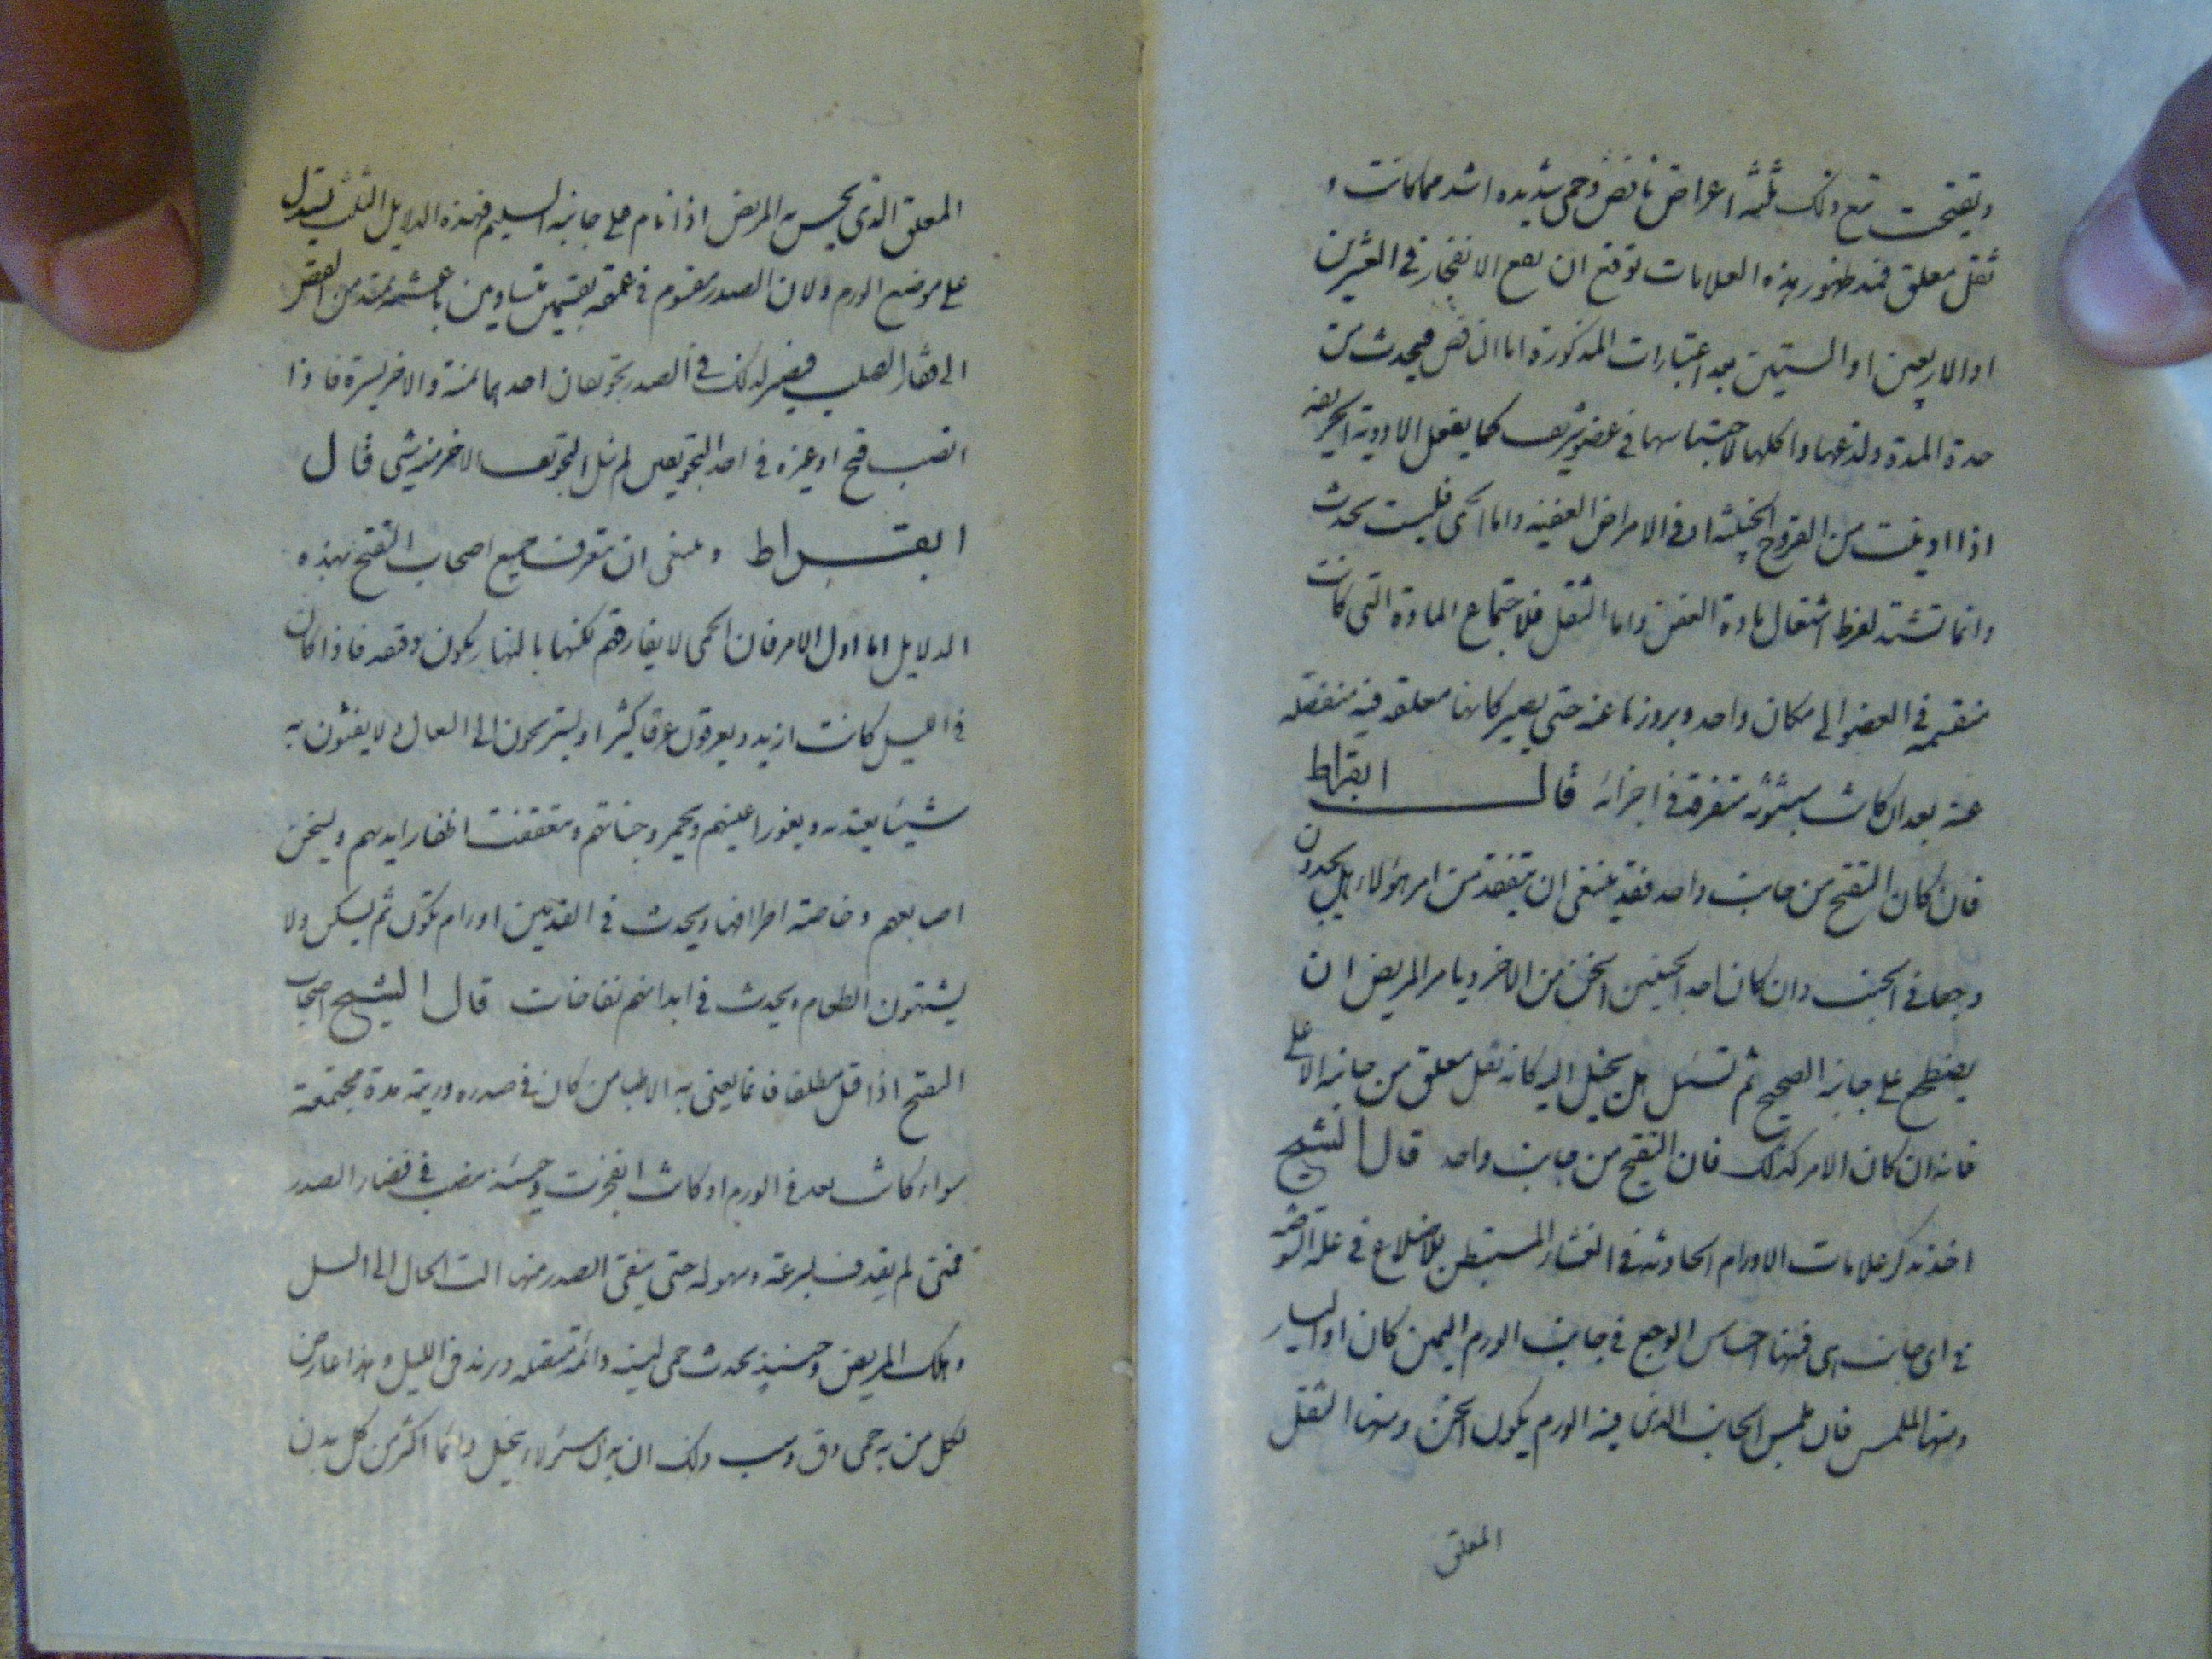 وتقيحت تبع ذلك ثلثه اعراض نافض وحمى شديده اشد مما كانت و
ثقل معلق فمند ظهور هذه العلامات توقع ان يقع الانفجار في العشرين
او الاربعين او الستين بعد اعتبارات المذكورة اما النافض فيحدث من
حدة المدة ولذعها واكلها لاحتباسها في عضو شريف كما يفعل الادوية الحريفه
اذا اديفت من القروح الخبيثه او في الامراض العفنيه واما الحمى فليست تحدث
وانما تشتد لفرط اشتعال مادة العفن واما الثقل فلاجتماع المادة التى كانت
منقسمه في العضو الى مكان واحد وبروزها عنه حتى يصير كانها معلقه فيه منفصله
عنه بعد ان كانت مبثوثه متفرقه في اجزائه قال ابقراط
فان كان التقيح من جانب واحد فقد ينبغى ان يتفقد من امر هؤلاء هل يجدون
وجعا في الجنب وان كان احد الجنبين اسخن من الاخر ويامر المريض ان
يضطجع على جانبه الصحيح ثم تسئل هل يخيل اليه كانه ثقل معلق من جانبه الاعلى
فانه ان كان الامر كذلك فان التقيح من جانب واحد قال الشيخ
اخذ يذكر علامات الاورام الحادثه في الغشاء المستبطن للاضلاع في علة الشوصه
في اى جانب هى فمنها احساس الوجع في جانب الورم اليمين كان او اليسار
ومنها الملمس فان ملمس الجانب الذى فيه الورم يكون اسخن ومنها الثقل
المعلق
المعلق الذى يحس به المريض اذا نام على جانبه السليم فهذه الدلايل الثلث يستدل
على موضع الورم ولان الصدر مقسوم في عمقه بقسمين متساويين باغشيه ممتده من القص
الى فقار الصلب فيصير لذلك في الصدر تجويفان احدهما يمنة والاخر يسرة فاذا
انصب قيح او غيره في احد التجويفين لم ينل التجويف الاخر منه شى قال
ابقراط وينبغى ان تتعرف جميع اصحاب التقيح بهذه
الدلايل اما اول الامر فان الحمى لا يفارقهم لكنها بالنهار يكون دقيقه فاذا كان
في الليل كانت ازيد ويعرقون عرقا كثيرا ويستريحون الى السعال ولا ينفثون به
شيئا يعتد به ويغور اعينهم ويحمر وجناتهم وتعقفت اظفار ايديهم ويسخن
اصابعهم وخاصة اطرافها ويحدث في القدمين اورام تكون ثم يسكن ولا
يشتهون الطعام ويحدث في ابدانهم نفاخات قال الشيخ اصحاب
التقيح اذا قيل مطلقا فانما يعنى به الاطبا من كان في صدره وريته مدة مجتمعة
سواء كانت بعد في الورم او كانت انفجرت وحينئذ تنصب في فضاء الصدر
فمتى لم يقذف بسرعة وسهوله حتى ينقى الصدر منها الت الحال الى السل
وهلك المريض وحينئذ يحدث حمى لينه دائمة متصله ويزيد في الليل وهذا عارض
لكل من به حمى دق وسبب ذلك ان بدن هؤلاء يتحلل دائما اكثر من كل بدن